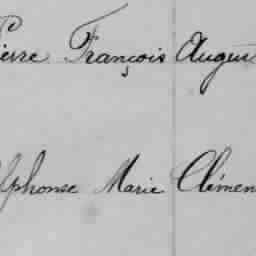 ierre François Augus
lphonse Marie Clémen